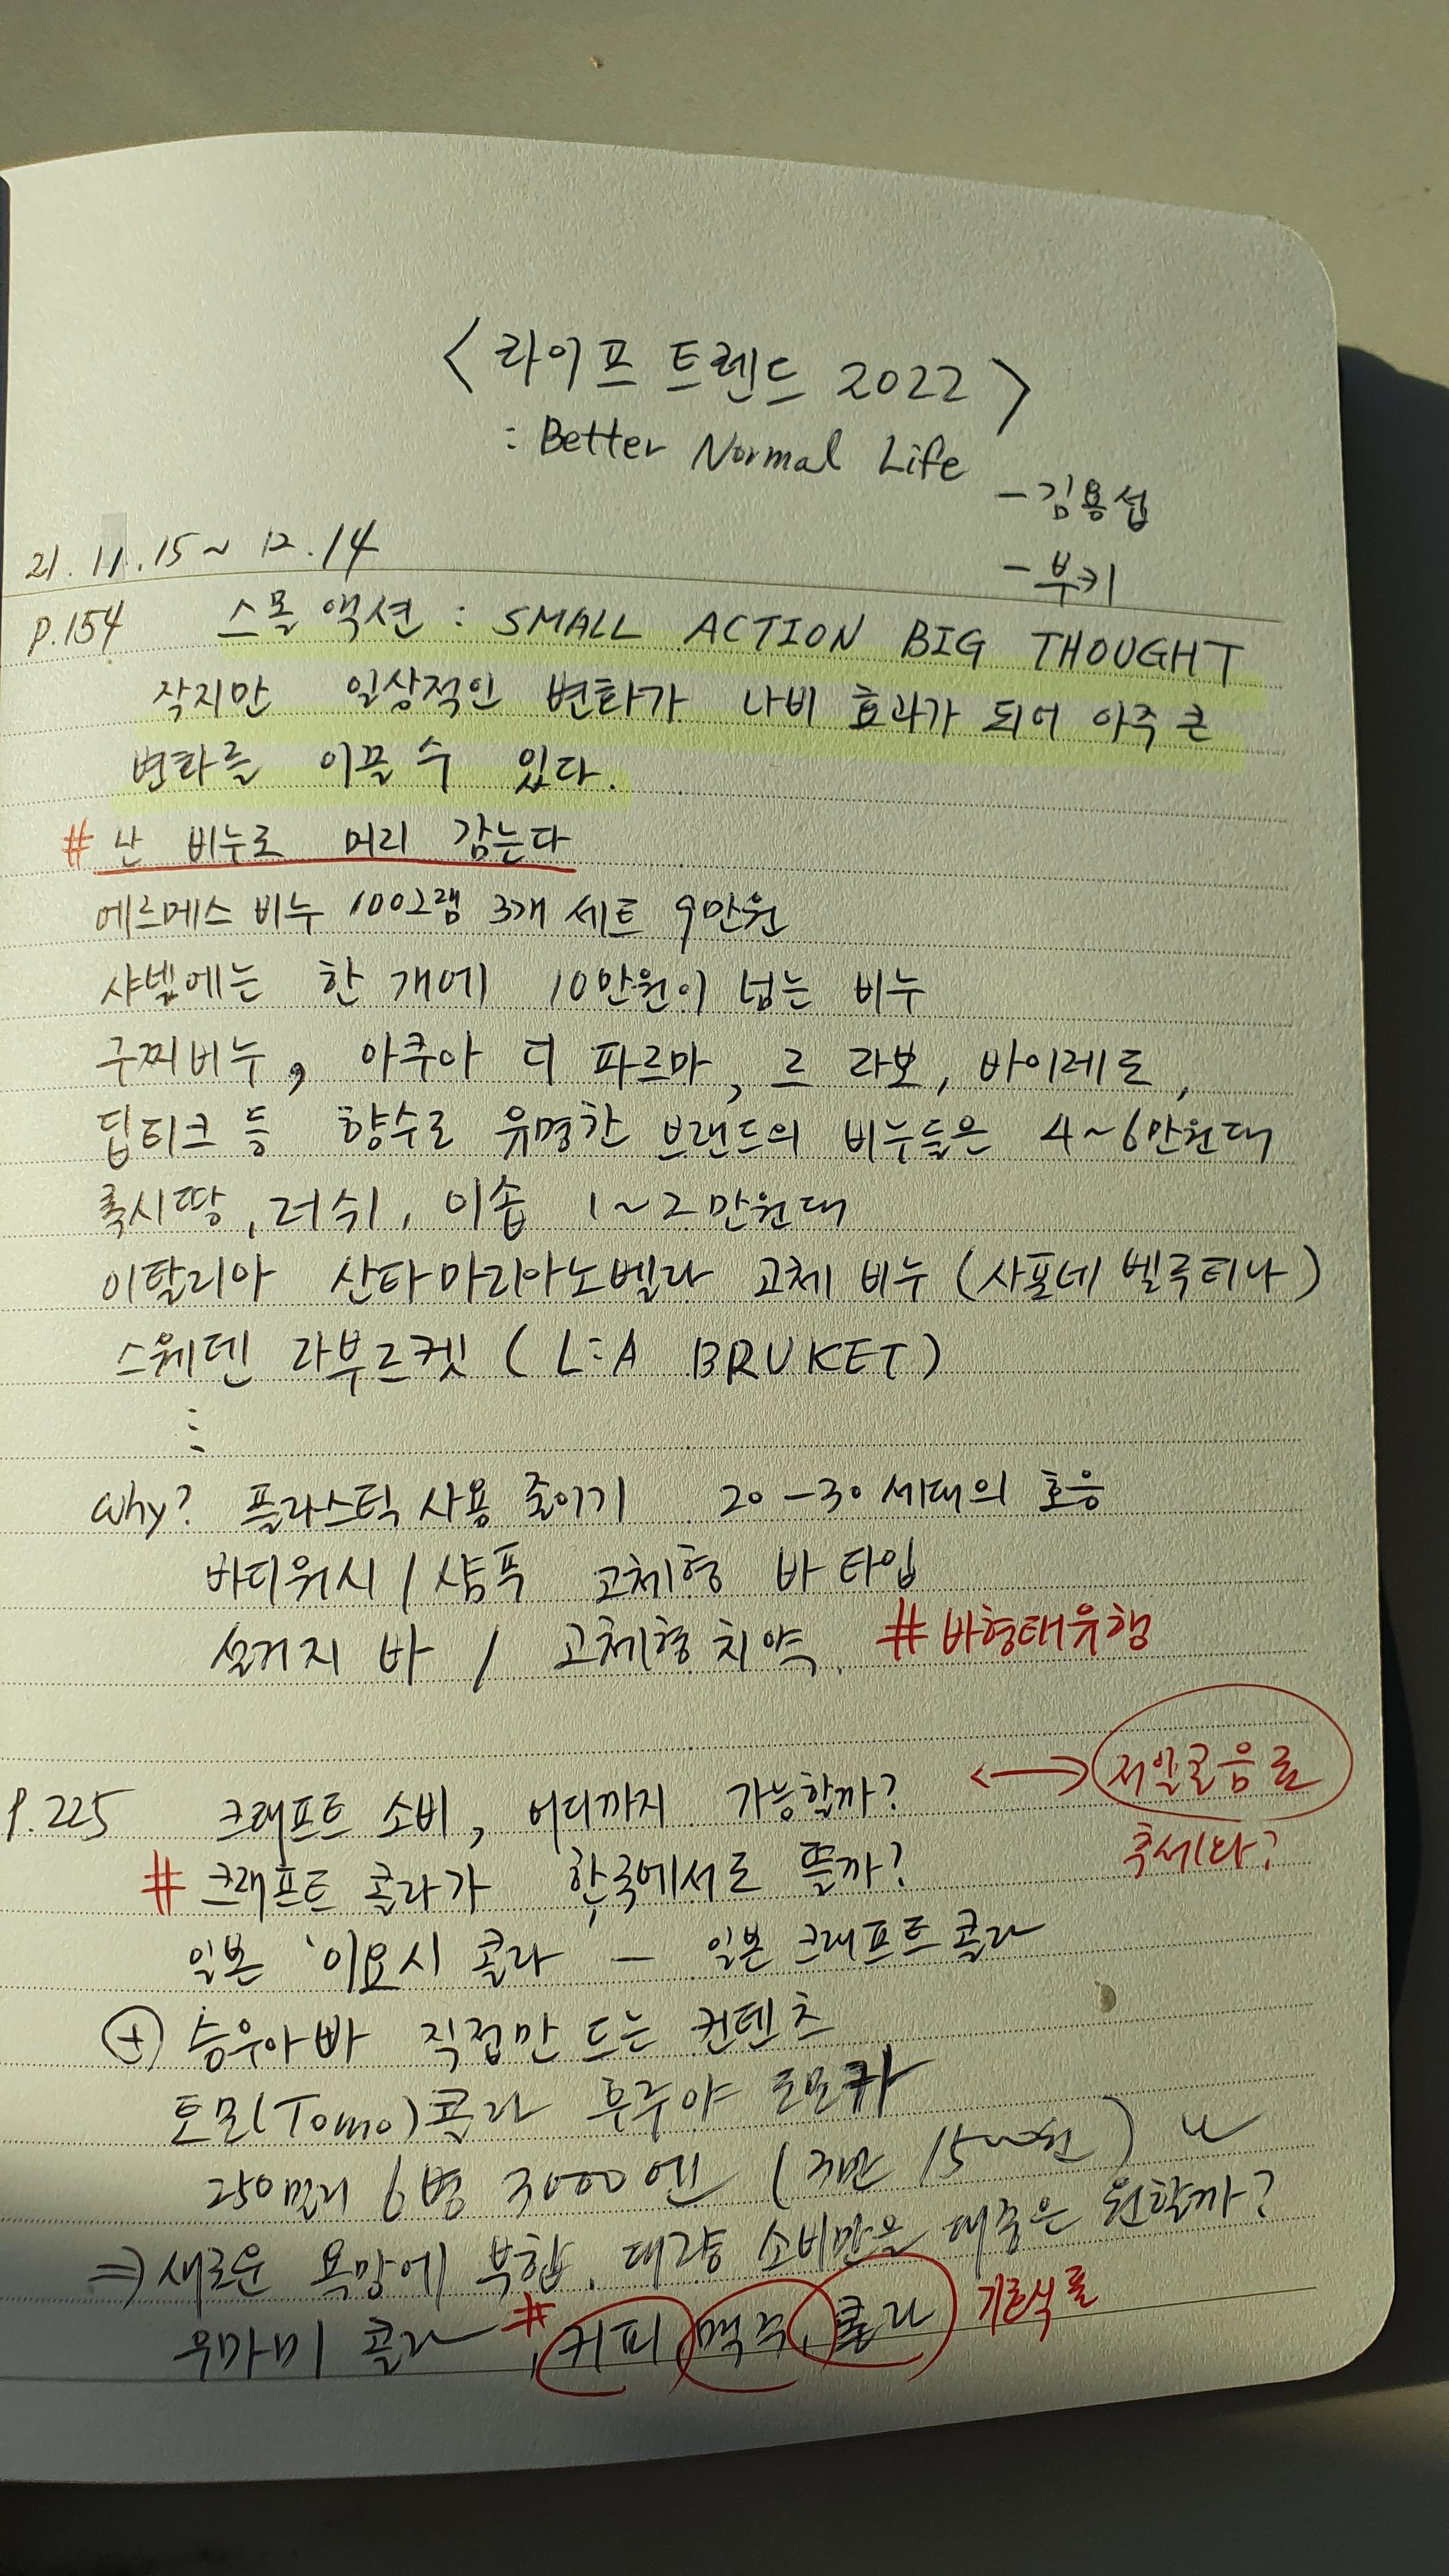 <라이프 트렌드 2022>
: Better Normal Life
- 김용섭
- 부키
21. 11. 15 ~ 12. 14
P.154 스몰 액션 : SMALL ACTION BIG THOUGHT
작지만 일상적인 변화가 나비 효과가 되어 아주 큰
변화를 이끌 수 있다.
# 난 비누로 머리 감는다
에르메스 비누 100그램 3개 세트 9만원
샤넬에는 한 개에 10만원이 넘는 비누
구찌비누, 아쿠아 디 파르마, 르 라보, 바이레도,
딥티크 등 향수로 유명한 브랜드의 비누들은 4~6만원대
록시땅, 러쉬, 이솝 1~2만원대
이탈리아 산타마리아노벨라 고체 비누 (사포네 벨루티나)
스웨덴 라부르켓 (L:A BRUKET)
⋮
Why? 플라스틱 사용 줄이기 20-30 세대의 호응
바디워시 / 샴푸 고체형 바 타입
설거지 바 / 고체형 치약. # 바형태유행
P.225 크래프트 소비, 어디까지 가능할까? ↔ 저알콜음료
추세와?
# 크래프트 콜라가 한국에서도 뜰까?
일본 '이요시 콜라 - 일본 크래프트 콜라
⊕ 승우아빠 직접만드는 컨텐츠
토모(Tomo)콜라 후루야 토모카
250밀리 6병 3000엔 (3만
⇒ 새로운 욕망에 부합. 대량 소비만을 대중은 원할까?
우마미 콜라 # 커피, 맥주, 콜라